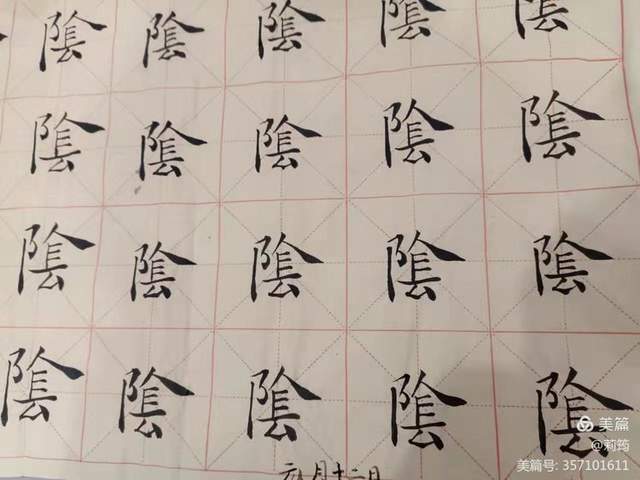 陰 陰 陰 陰 陰
陰 陰 陰 陰 陰
陰 陰 陰 陰 陰
陰 陰 陰 陰 陰
月十二日
美篇
@莉筠
美篇号: 357101611